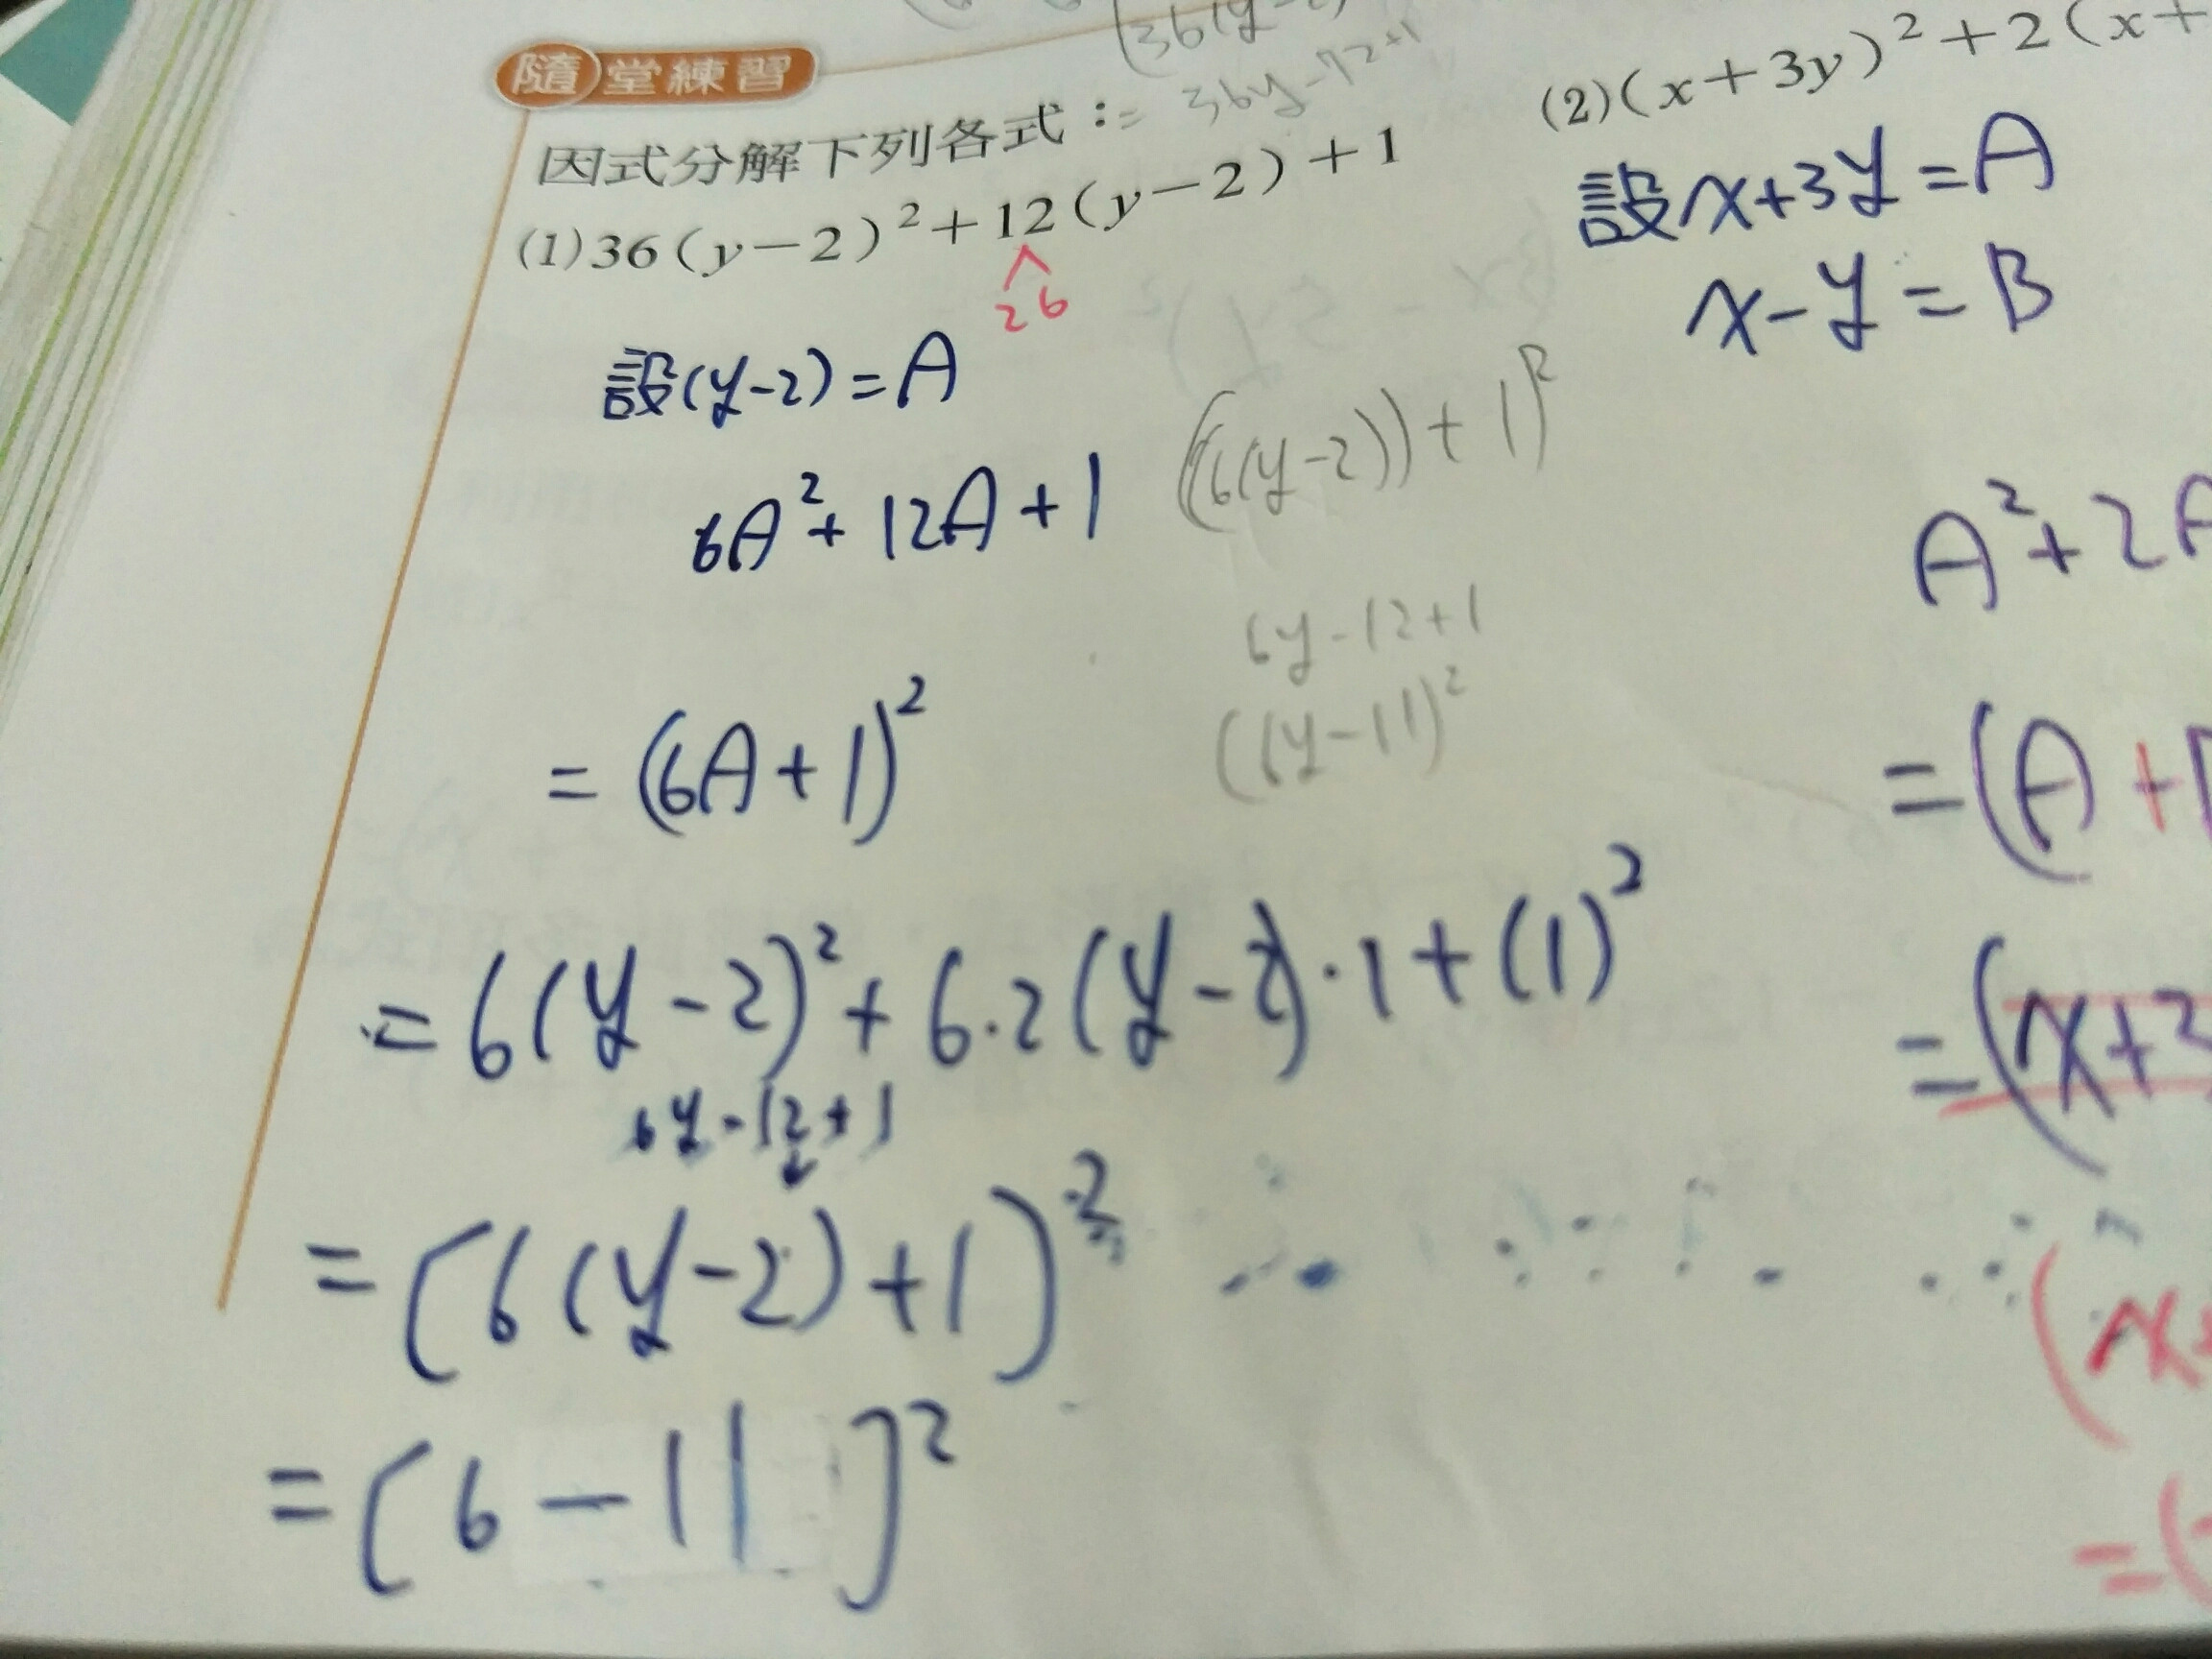 隨堂練習
因式分解下列各式：
= 36y-72+1
(1)36(y-2)²+12(y-2)+1
2 6
設(y-2)=A
6A²+12A+1
((6(y-2))+1)²
6y-12+1
(6y-11)²
=(6A+1)²
=6(y-2)²+6·2(y-2)·1+(1)²
6y-12+1
=[6(y-2)+1)²
=[6-11]²
(2)(x+3y)²+2(x+
設x+3y=A
x-y=B
A²+2A
=(A+
=(x+3
(x+
=(